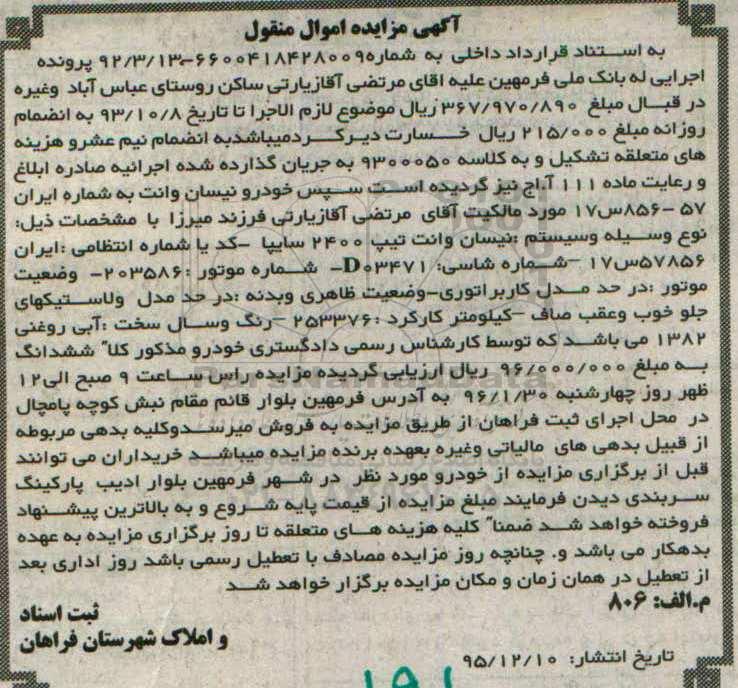 آگهی مزایده اموال منقول
به استناد قرارداد داخلی به شماره۶۶۰۰۴۱۸۴۲۸۰۰۹-۹۲/۳/۱۳ پرونده
اجرایی له بانک ملی فرمهین علیه اقای مرتضی آقازیارتی ساکن روستای عباس آباد وغیره
در قبال مبلغ ۳۶۷/۹۷۰/۸۹۰ ریال موضوع لازم الاجرا تا تاریخ ۹۳/۱۰/۸ به انضمام
روزانه مبلغ ۲۱۵/۰۰۰ ریال خسارت دیرکردمیباشدبه انضمام نیم عشرو هزینه
های متعلقه تشکیل و به کلاسه ۹۳۰۰۰۵۰ به جریان گذارده شده اجرائیه صادره ابلاغ
و رعایت ماده ۱۱۱ آ.اج نیز گردیده است سپس خودرو نیسان وانت به شماره ایران
۵۷-۸۵۶س۱۷ مورد مالکیت آقای مرتضی آقازیارتی فرزند میرزا با مشخصات ذیل:
نوع وسیله وسیستم :نیسان وانت تیپ ۲۴۰۰ سایپا -کد یا شماره انتظامی :ایران
۵۷۸۵۶س۱۷ -شماره شاسی: D۰۳۴۷۱- شماره موتور :۲۰۳۵۸۶- وضعیت
موتور :در حد مدل کاربراتوری-وضعیت ظاهری وبدنه :در حد مدل ولاستیکهای
جلو خوب وعقب صاف -کیلومتر کارکرد :۲۵۳۳۷۶ -رنگ وسال سخت :آبی روغنی
۱۳۸۲ می باشد که توسط کارشناس رسمی دادگستری خودرو مذکور کلا" ششدانگ
به مبلغ ۹۶/۰۰۰/۰۰۰ ریال ارزیابی گردیده مزایده راس ساعت ۹ صبح الی۱۲
ظهر روز چهارشنبه ۹۶/۱/۳۰ به آدرس فرمهین بلوار قائم مقام نبش کوچه پامچال
در محل اجرای ثبت فراهان از طریق مزایده به فروش میرسدوکلیه بدهی مربوطه
از قبیل بدهی های مالیاتی وغیره بعهده برنده مزایده میباشد خریداران می توانند
قبل از برگزاری مزایده از خودرو مورد نظر در شهر فرمهین بلوار ادیب پارکینگ
سربندی دیدن فرمایند مبلغ مزایده از قیمت پایه شروع و به بالاترین پیشنهاد
فروخته خواهد شد ضمنا" کلیه هزینه های متعلقه تا روز برگزاری مزایده به عهده
بدهکار می باشد و. چنانچه روز مزایده مصادف با تعطیل رسمی باشد روز اداری بعد
از تعطیل در همان زمان و مکان مزایده برگزار خواهد شد
م.الف: ۸۰۶
ثبت اسناد
و املاک شهرستان فراهان
تاریخ انتشار: ۹۵/۱۲/۱۰
۱۹۱